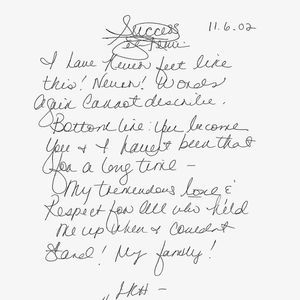 Success 11.6.02
I have never felt like
this! Never! Words
again cannot describe.
Bottom line: You become
You & I haven't been that
for a long time –
My tremendous love &
Respect for all who held
me up when I couldn't
stand! My family!